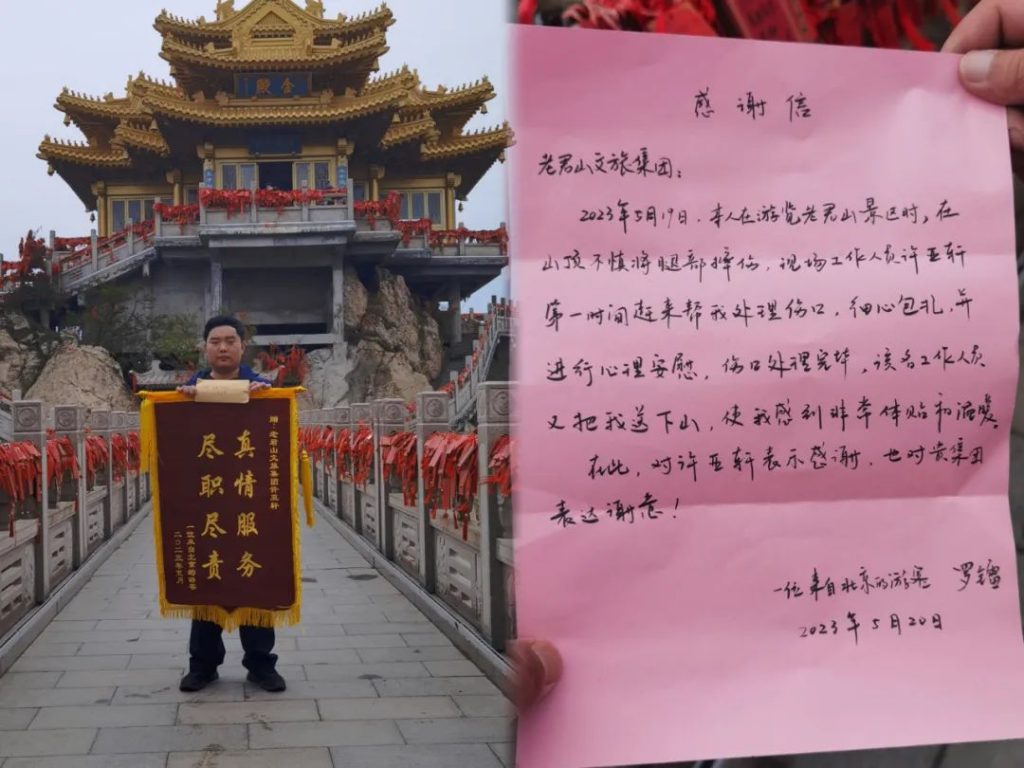 金殿
赠：老君山文旅集团许亚轩
真情服务
尽职尽责
一位来自北京的游客
二〇二三年五月
感谢信
老君山文旅集团：
2023年5月19日，本人在游览老君山景区时，在
山顶不慎将腿部摔伤，现场工作人员许亚轩
第一时间赶来帮我处理伤口，细心包扎，并
进行心理安慰，伤口处理完毕，该名工作人员
又把我送下山，使我感到非常体贴和温暖。
在此，对许亚轩表示感谢，也对贵集团
表达谢意！
一位来自北京的游客 罗镭
2023年5月20日